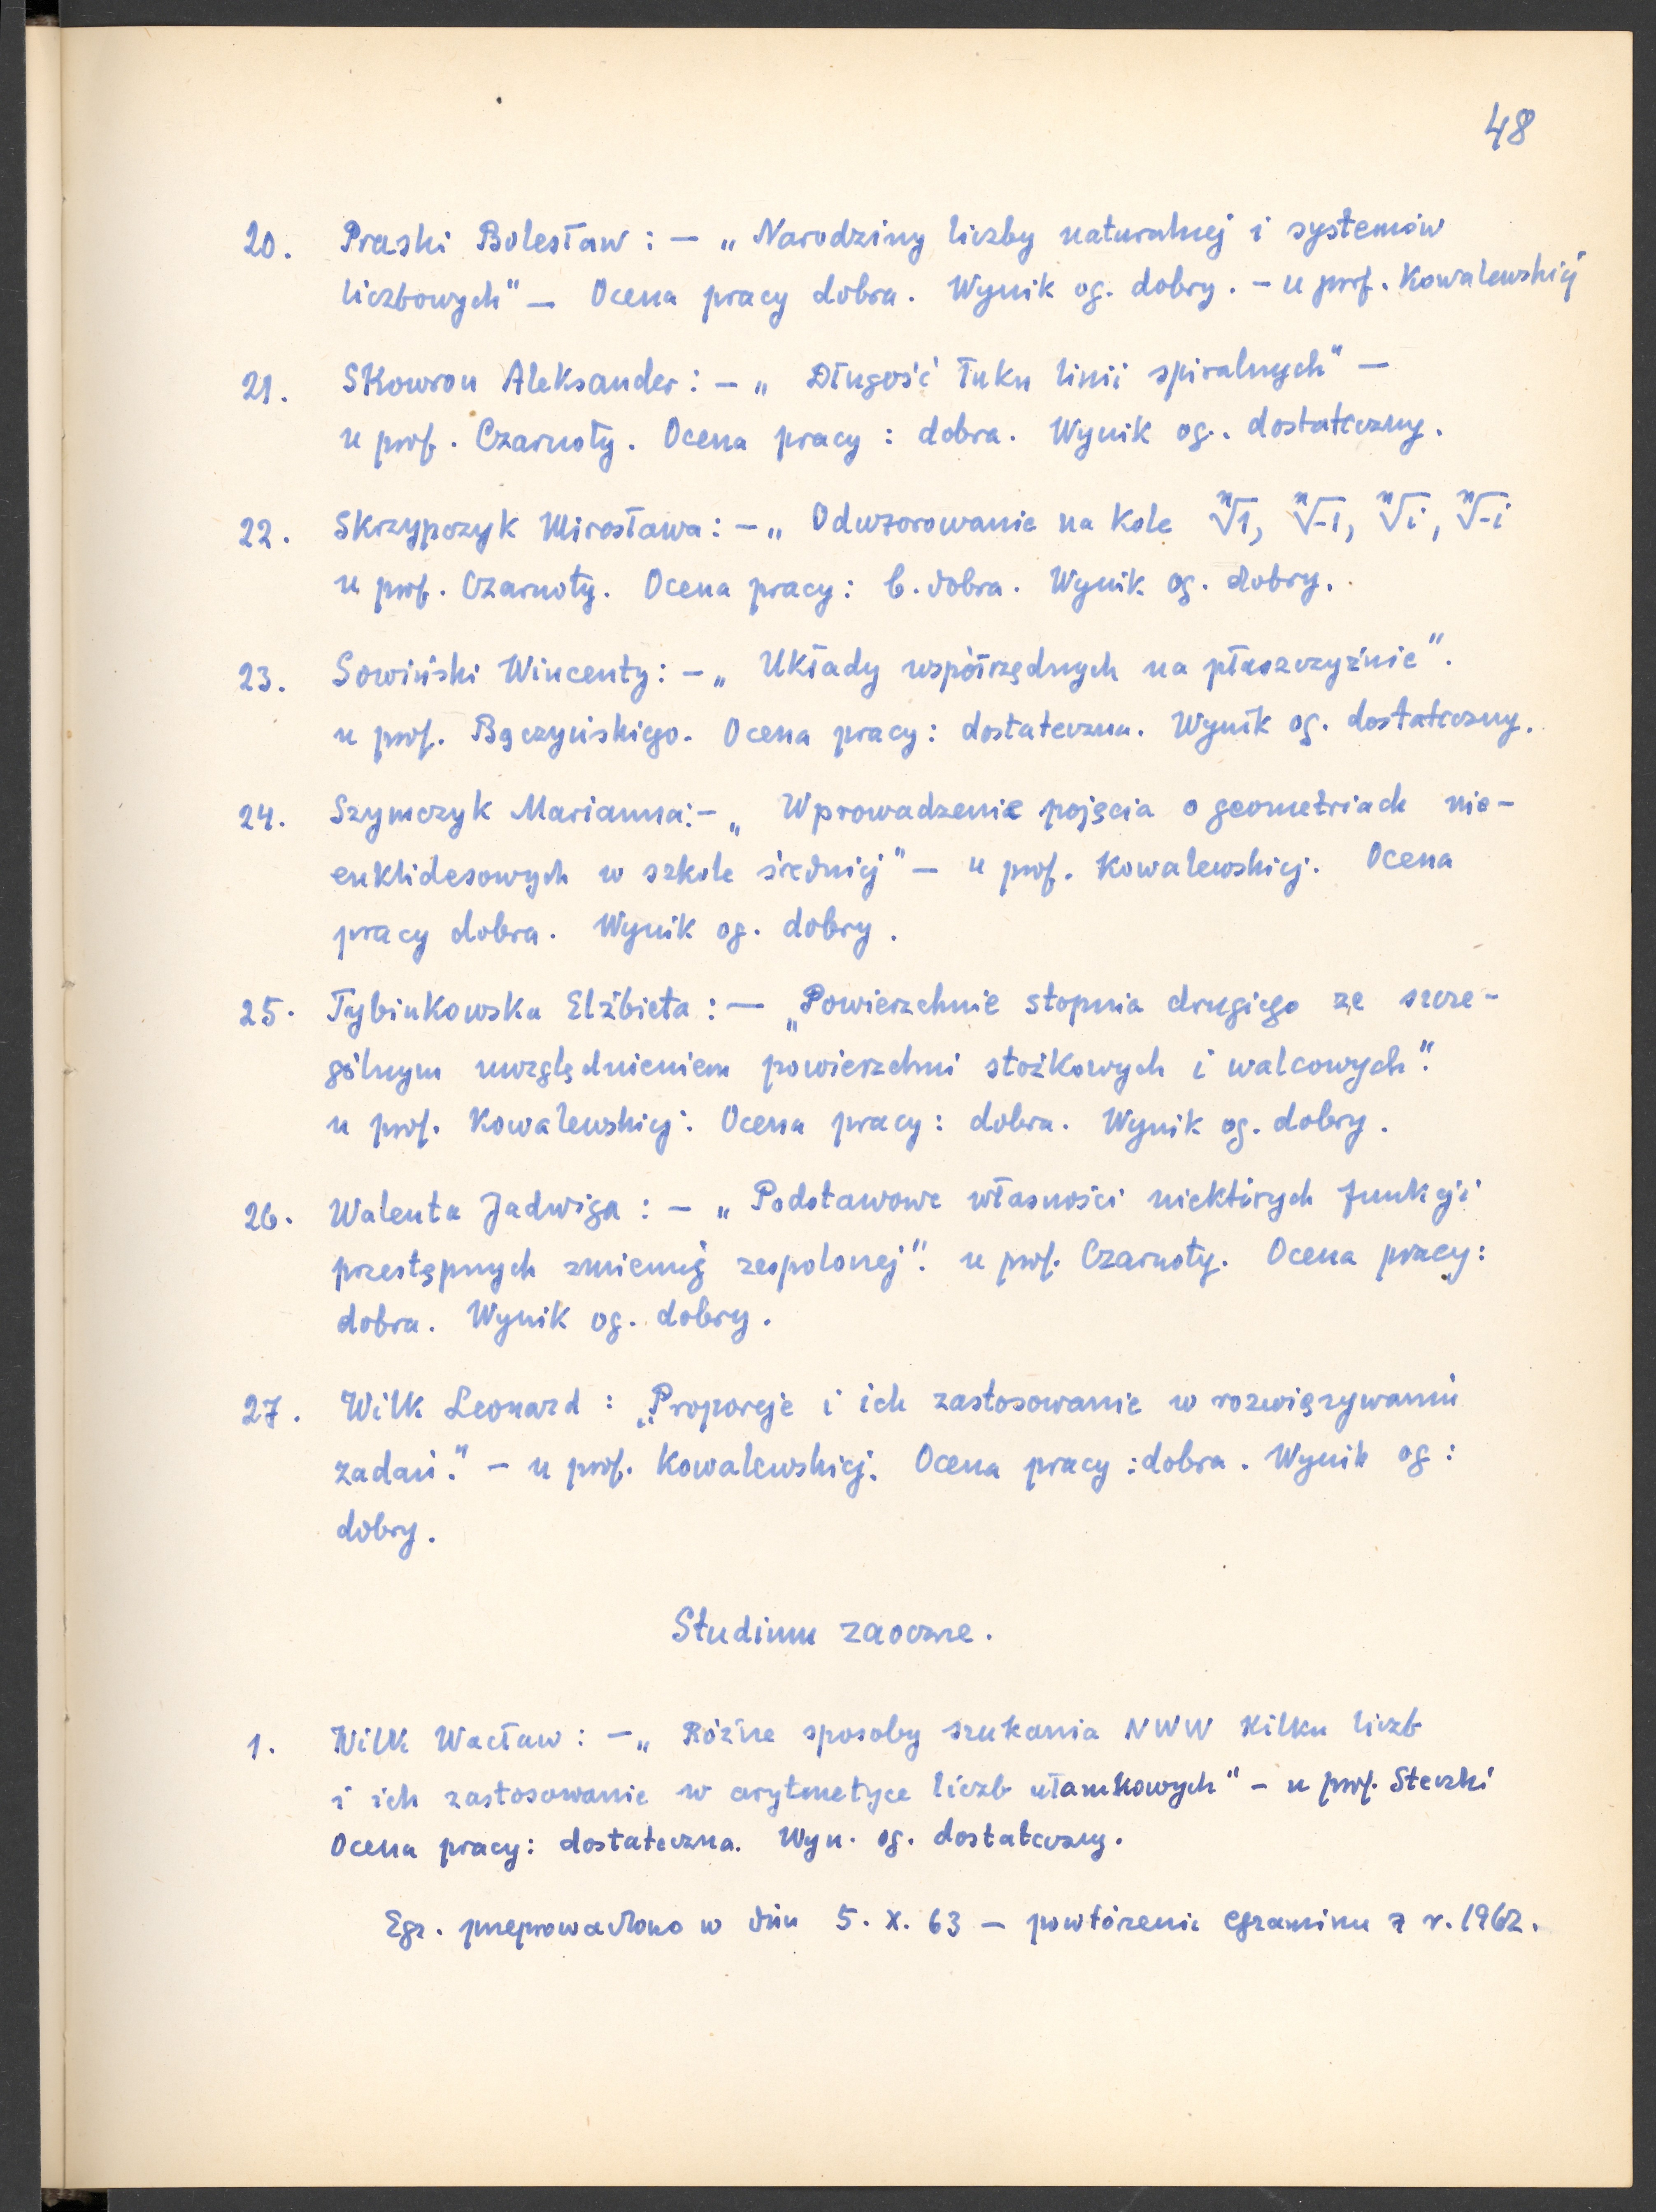 48
20. Praski Bolesław : — „Narodziny liczby naturalnej i systemów
liczbowych" — Ocena pracy dobra. Wynik og. dobry. – u prof. Kowalewskiej
21. Skowron Aleksander : – „Długość łuku linii spiralnych" —
u prof. Czarnoty. Ocena pracy : dobra. Wynik og. dostateczny.
22. Skrzypczyk Mirosława : – „Odwzorowanie na kole ⁿ√1, ⁿ√-1, ⁿ√i, ⁿ√-i
u prof. Czarnoty. Ocena pracy : b. dobra. Wynik og. dobry.
23. Sowiński Wincenty : – „Układy współrzędnych na płaszczyźnie".
u prof. Bączyńskiego. Ocena pracy : dostateczna. Wynik og. dostateczny.
24. Szymczyk Marianna : – „Wprowadzenie pojęcia o geometriach nie-
euklidesowych w szkole średniej" – u prof. Kowalewskiej. Ocena
pracy dobra. Wynik og. dobry.
25. Tybinkowska Elżbieta : — „Powierzchnie stopnia drugiego ze szcze-
gólnym uwzględnieniem powierzchni stożkowych i walcowych".
u prof. Kowalewskiej. Ocena pracy : dobra. Wynik og. dobry.
26. Walenta Jadwiga : – „Podstawowe własności niektórych funkcji
przestępnych zmiennej zespolonej". u prof. Czarnoty. Ocena pracy :
dobra. Wynik og. dobry.
27. Wilk Leonard : „Proporcje i ich zastosowanie w rozwiązywaniu
zadań." – u prof. Kowalewskiej. Ocena pracy : dobra. Wynik og :
dobry.
Studium zaoczne.
1. Wilk Wacław : – „Różne sposoby szukania NWW kilku liczb
i ich zastosowanie w arytmetyce liczb ułamkowych" – u prof. Steczki
Ocena pracy : dostateczna. Wyn. og. dostateczny.
Egz. przeprowadzono w dniu 5. X. 63 – powtórzenie egzaminu z r. 1962.